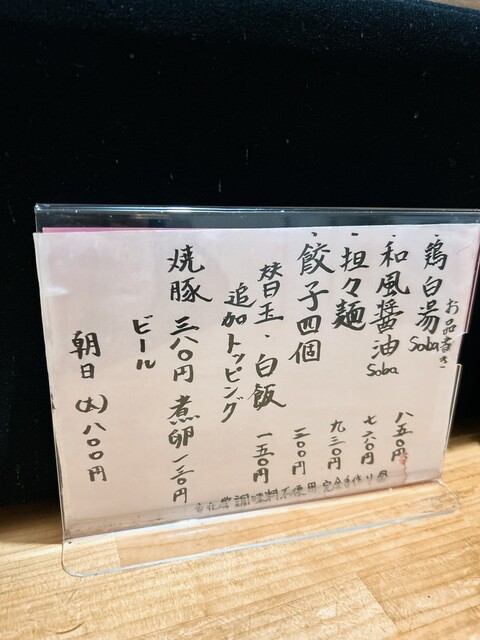 お品書き
鶏白湯Soba 八五〇円
和風醤油Soba 七六〇円
坦々麺 九三〇円
餃子四個 三〇〇円
替玉・白飯 一五〇円
追加トッピング
焼豚 三八〇円 煮卵 一三〇円
ビール
朝日 (大) 八〇〇円
調味料不使用 完全手作り